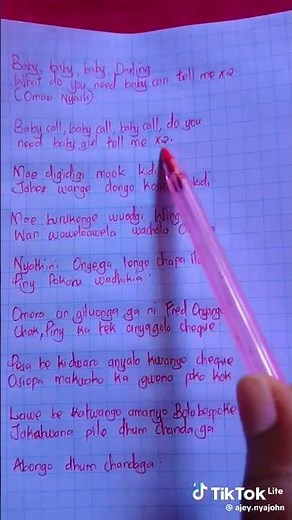 Baby, baby, baby, Darling
What do you need baby can tell me x2
(Oman Nyash)
Baby call, baby call, baby call, do you
need baby girl tell me x2.
Moe digidigi maok kdi
Jaber wange dongo kdi
Moe burukenge wuodgi
Wan
Nyathini Onyega longo chapa
Piny Pokoru wadhikia
Omoro an giluonga ga ni Fred Onyango
Chak, Piny ka tek anyagolo cheque
Pesa be kidwaro anyalo kwanyo cheque
Osiepa makwoko ka gweno poko kok
Lawe be kotwango amanyo Bolo bespoke
Jakalwana pile dhum chandaga
Abongo dhum chandaga.
TikTok Lite
@ajey.nyajohn